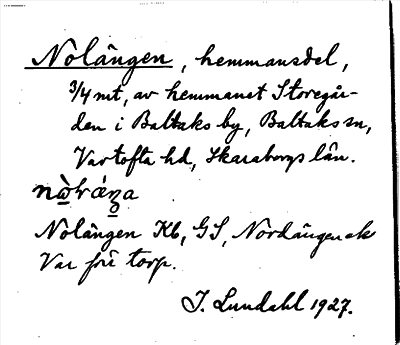 Nolängen, hemmansdel,
3/4 mt, av hemmanet Storegår-
den i Baltaks by, Baltaks sn,
Vartofta hd, Skaraborgs län.
Nolängen Kb, GS, Nordängen ek
Var förr torp.
J. Lundahl 1927.